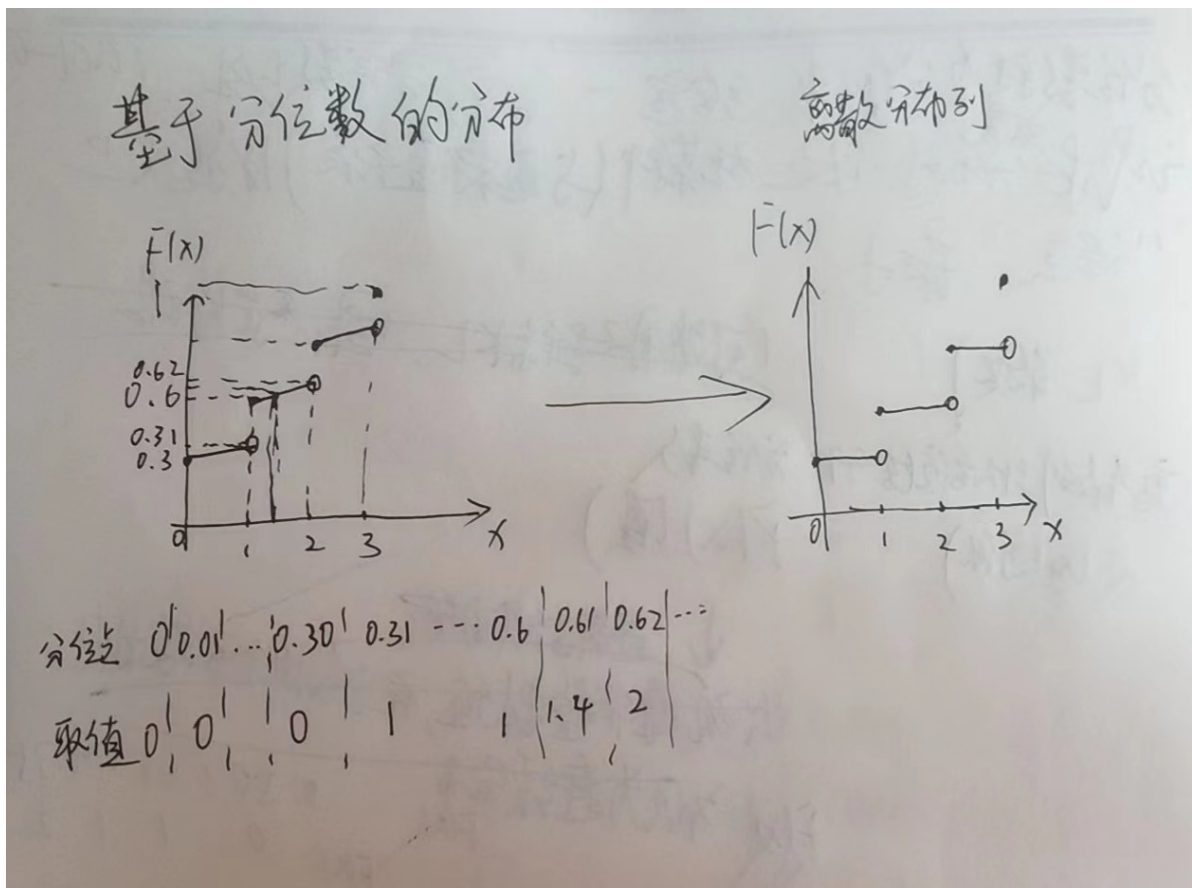 基于分位数的分布
离散分布列
F(x)
1
0.62
0.6
0.31
0.3
0 1 2 3 x
F(x)
0 1 2 3 x
分位点 0 0.01 ... 0.30 0.31 ... 0.6 0.61 0.62 ...
取值 0 0 0 1 1 1.4 2